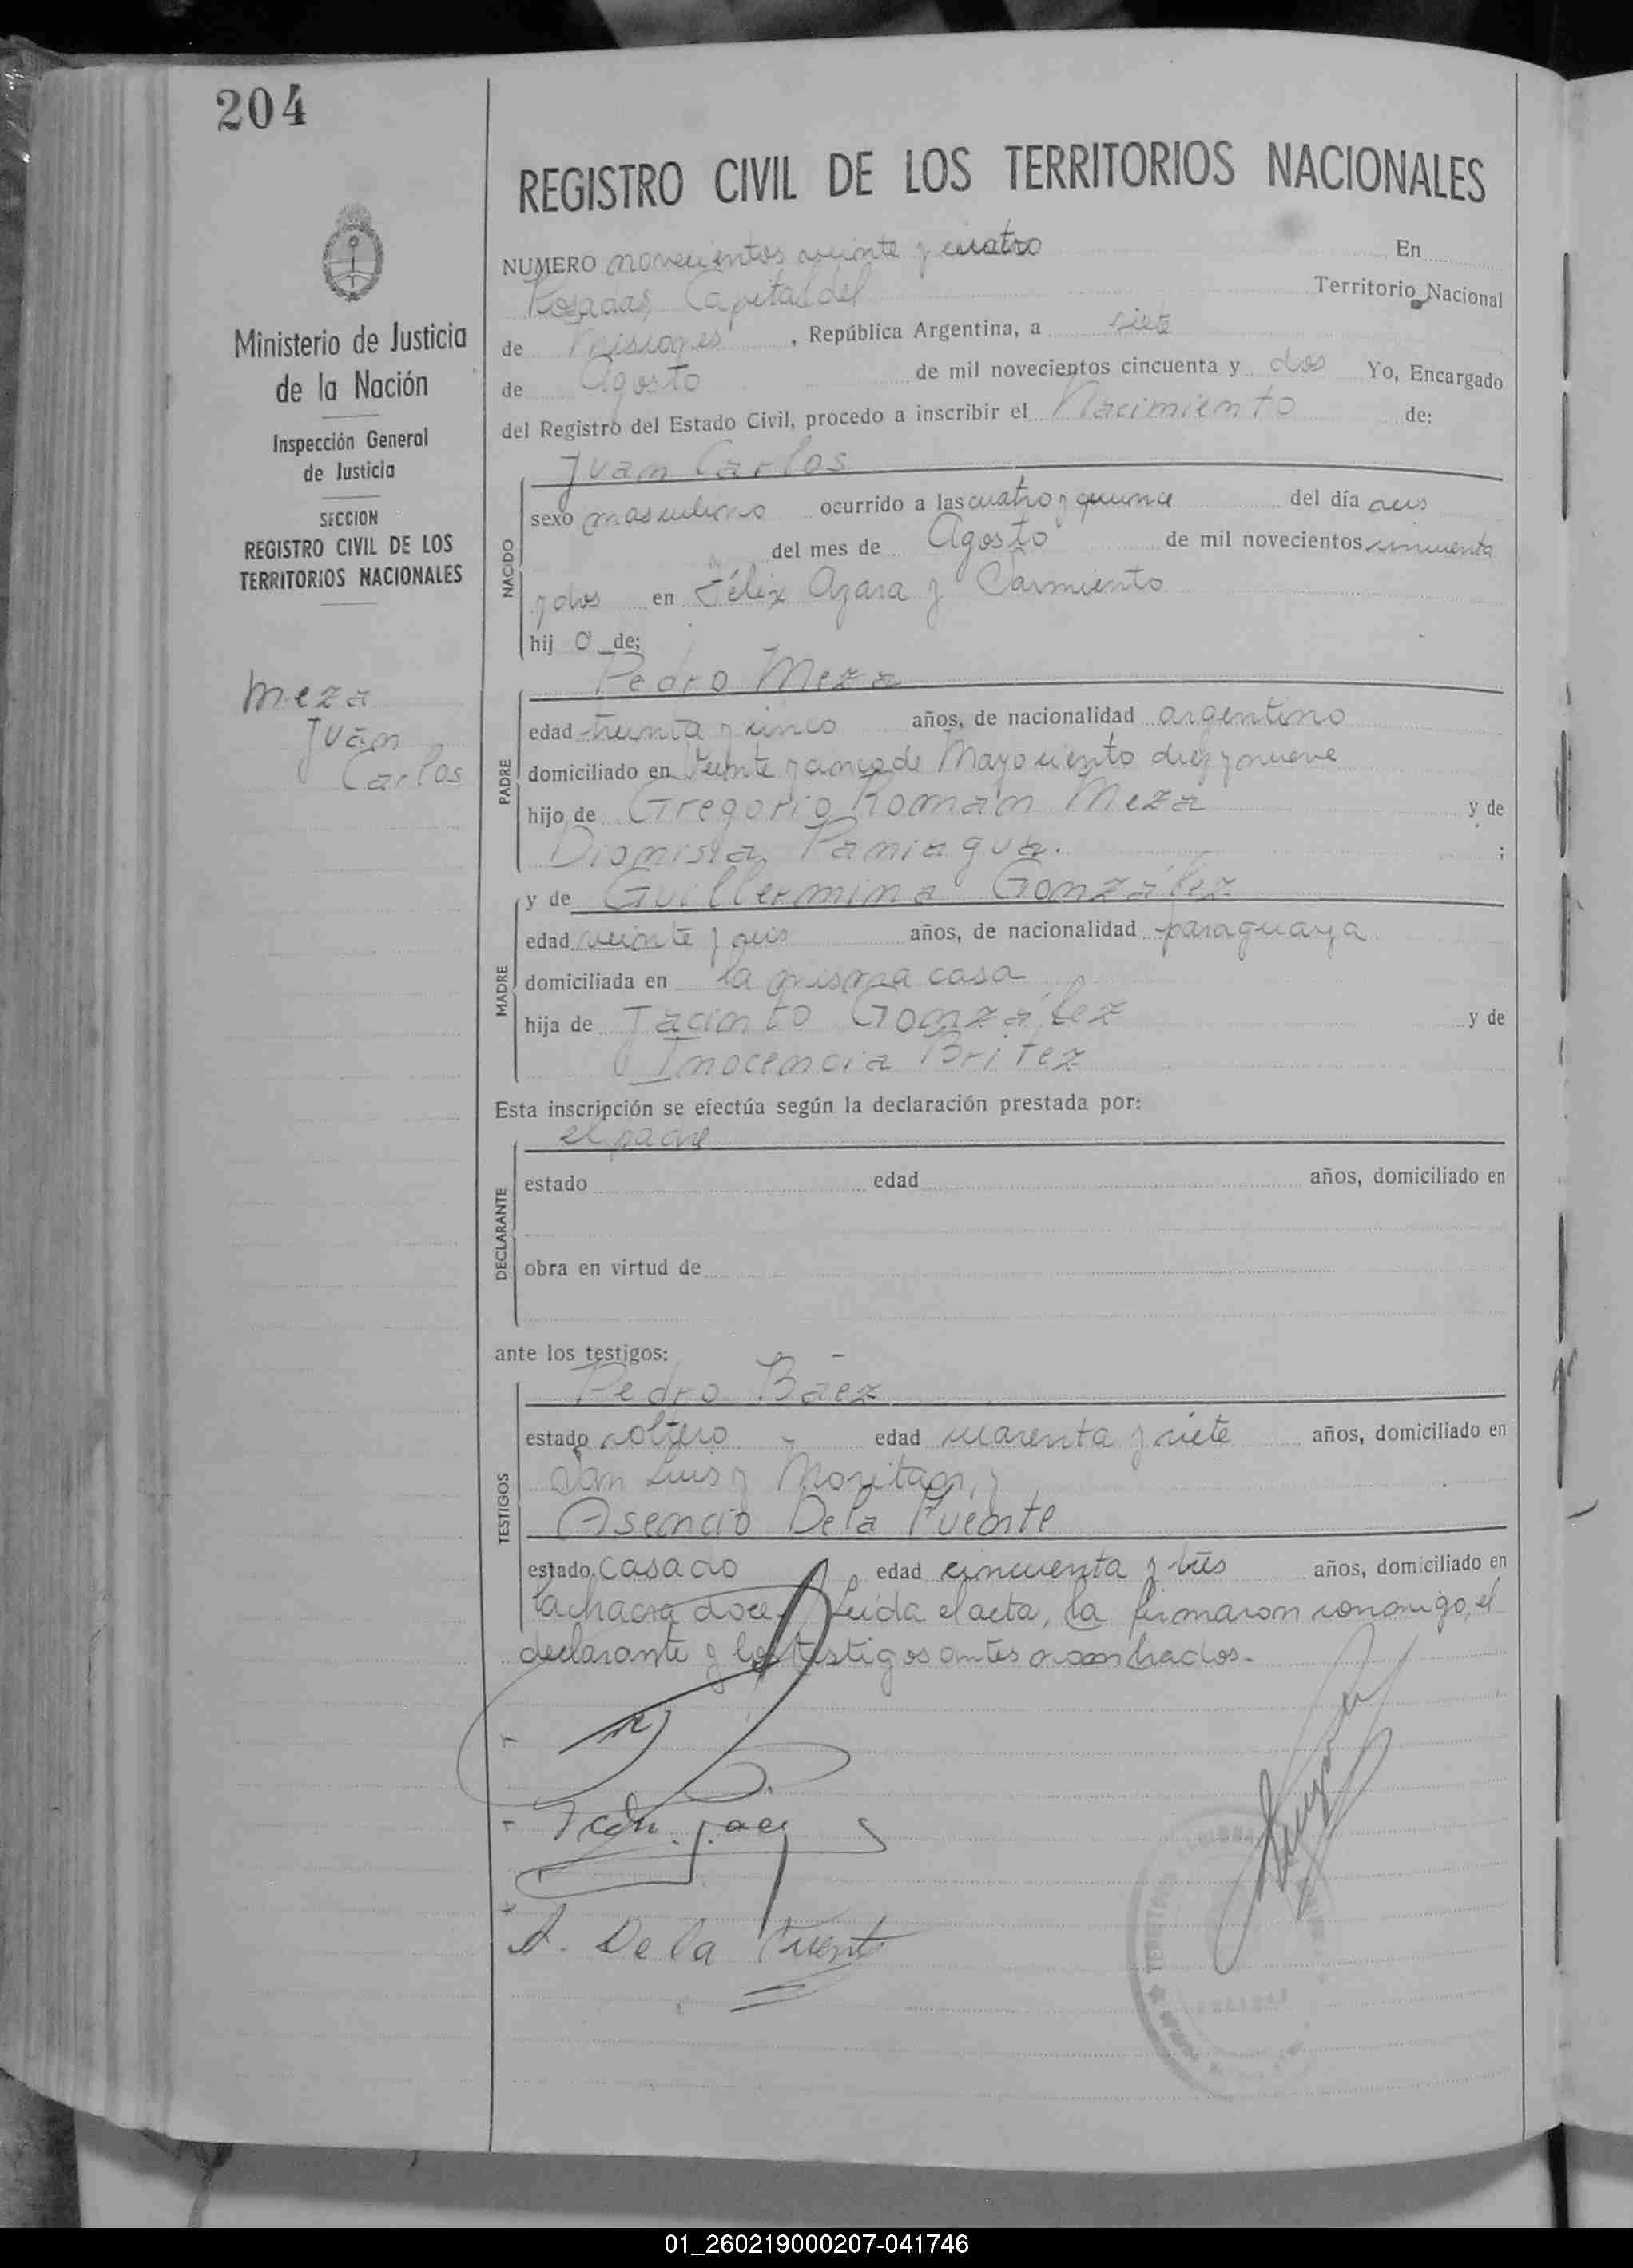 204
REGISTRO CIVIL DE LOS TERRITORIOS NACIONALES
Ministerio de Justicia
de la Nación
Inspección General
de Justicia
SECCION
REGISTRO CIVIL DE LOS
TERRITORIOS NACIONALES
Meza
Juan
Carlos
NUMERO novecientos veinte y cuatro En
Posadas, Capital del Territorio Nacional
de Misiones, República Argentina, a siete
de Agosto de mil novecientos cincuenta y dos Yo, Encargado
del Registro del Estado Civil, procedo a inscribir el Nacimiento de:
NACIDO
Juan Carlos
sexo masculino ocurrido a las cuatro y quince del día seis
del mes de Agosto de mil novecientos cincuenta
y dos en Félix Azara y Sarmiento
hijo de:
PADRE
Pedro Meza
edad treinta y cinco años, de nacionalidad argentino
domiciliado en Veinte y cinco de Mayo ciento diez y nueve
hijo de Gregorio Román Meza y de
Dionisia Paniagua. ;
MADRE
y de Guillermina González
edad veinte y seis años, de nacionalidad paraguaya
domiciliada en la misma casa
hija de Jacinto González y de
Inocencia Britez
Esta inscripción se efectúa según la declaración prestada por:
DECLARANTE
el padre
estado edad años, domiciliado en
obra en virtud de
ante los testigos:
TESTIGOS
Pedro Báez
estado soltero edad cuarenta y siete años, domiciliado en
San Luis y
Asencio De la Fuente
estado casado edad cincuenta y tres años, domiciliado en
la chacra doce. Leida el acta, la firmaron conmigo, el
declarante y los testigos antes nombrados.-
A. De la Fuente
01_260219000207-041746